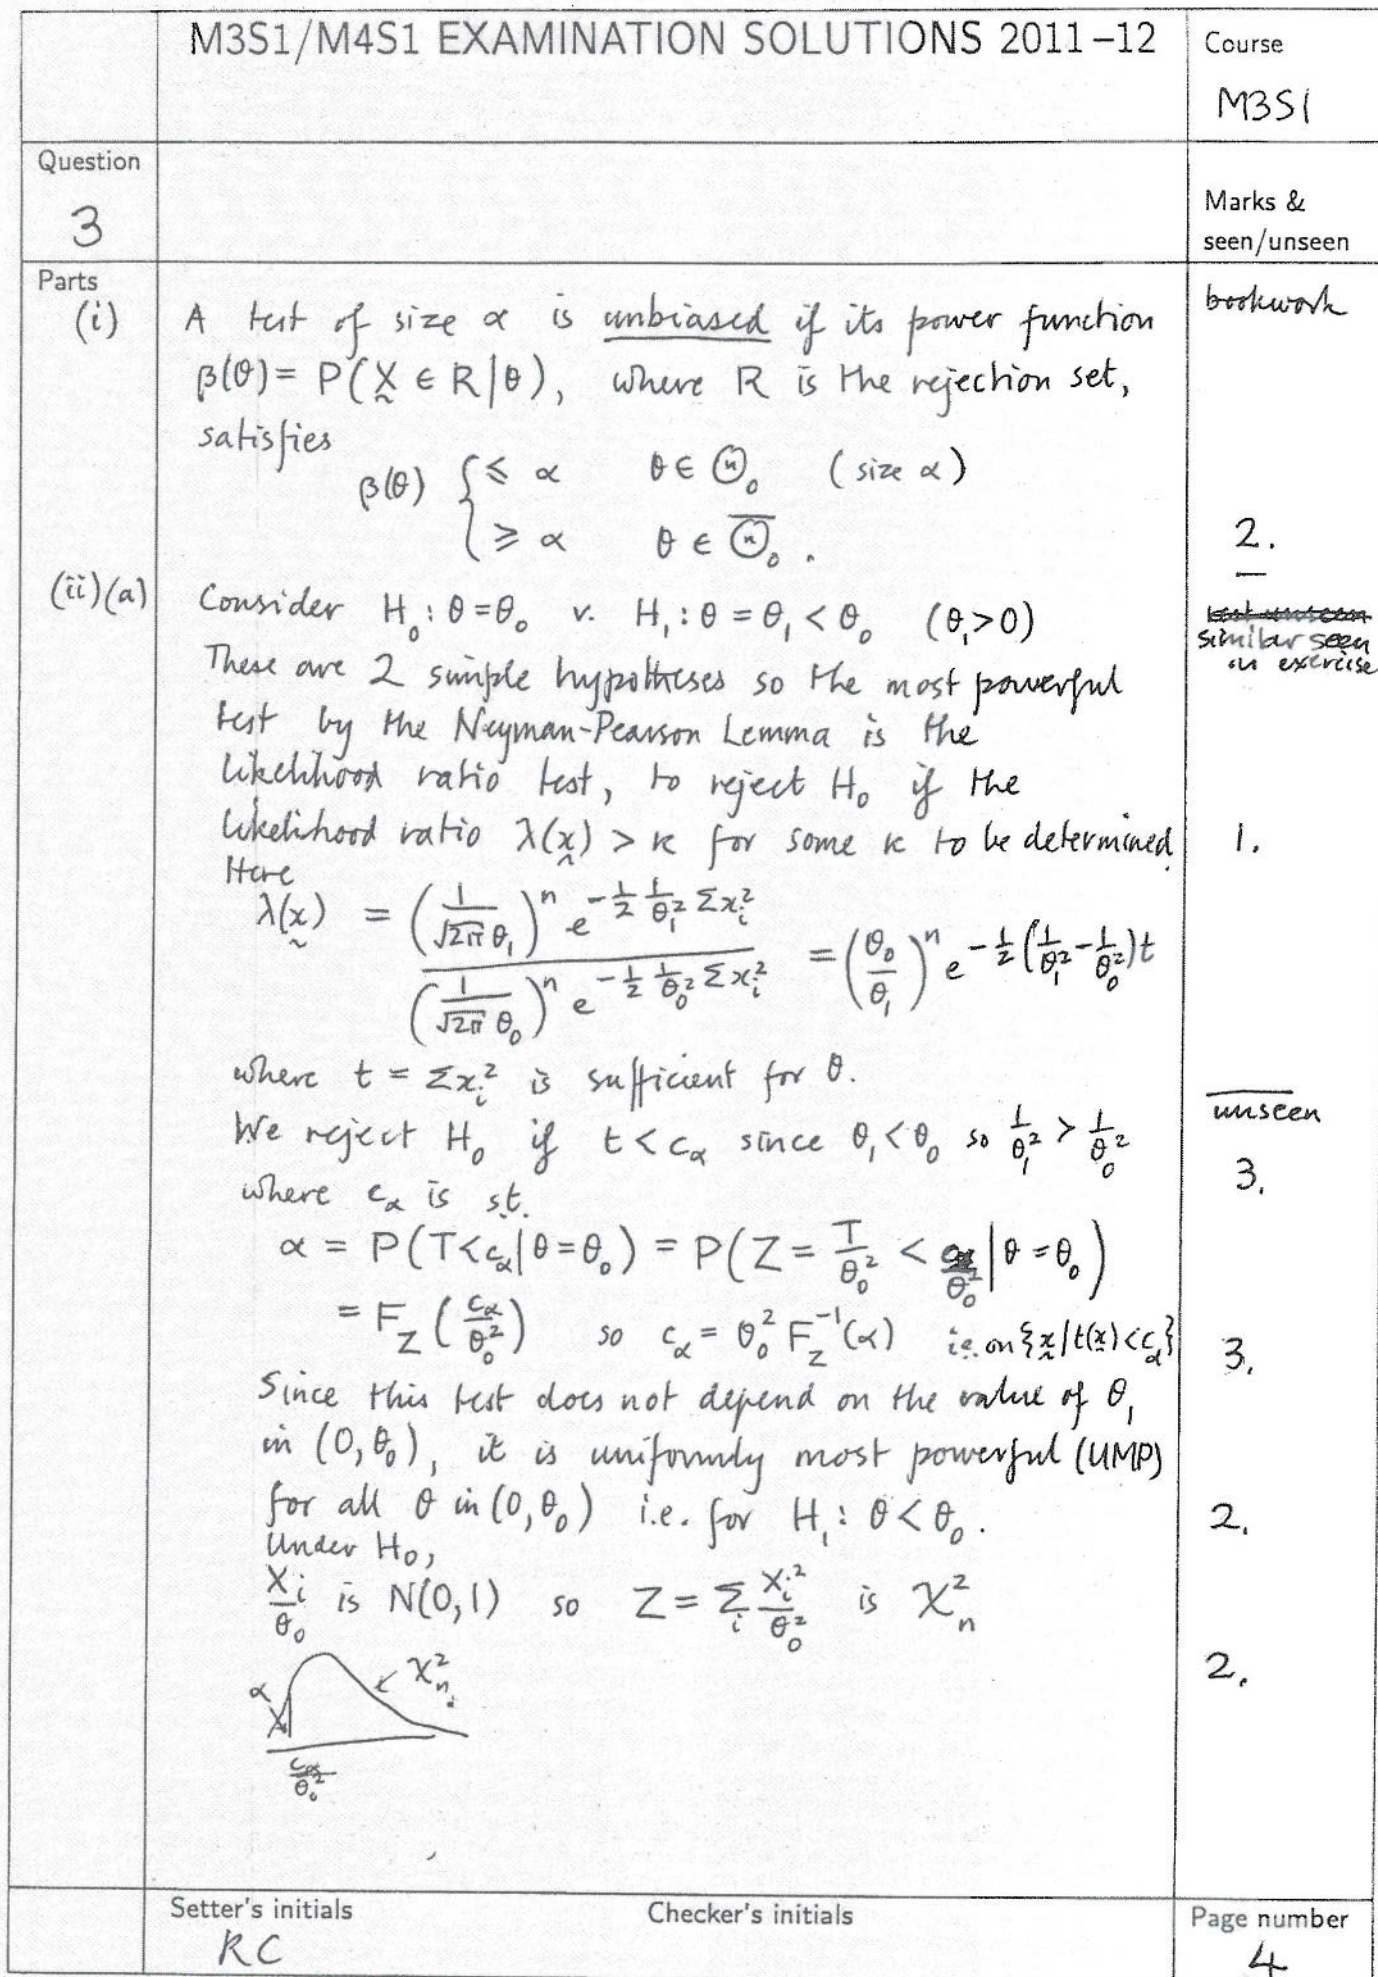 M3S1/M4S1 EXAMINATION SOLUTIONS 2011–12
Course
M3S1
Question
3
Marks &
seen/unseen
Parts
(i)
A test of size α is unbiased if its power function
bookwork
β(θ) = P(X ∈ R | θ), where R is the rejection set,
satisfies
β(θ) { ≤ α θ ∈ Θ₀ (size α)
≥ α θ ∈ Θ̅₀ .
2.
(ii)(a)
Consider H₀ : θ = θ₀ v. H₁ : θ = θ₁ < θ₀ (θ₁ > 0)
similar seen
in exercise
These are 2 simple hypotheses so the most powerful
test by the Neyman-Pearson Lemma is the
likelihood ratio test, to reject H₀ if the
likelihood ratio λ(x) > κ for some κ to be determined.
1.
Here
λ(x) = (1/(√2π θ₁))ⁿ e^{-½ 1/θ₁² Σxᵢ²} / (1/(√2π θ₀))ⁿ e^{-½ 1/θ₀² Σxᵢ²} = (θ₀/θ₁)ⁿ e^{-½(1/θ₁² - 1/θ₀²)t}
where t = Σxᵢ² is sufficient for θ.
unseen
We reject H₀ if t < c_α since θ₁ < θ₀ so 1/θ₁² > 1/θ₀²
3.
where c_α is s.t.
α = P(T < c_α | θ = θ₀) = P(Z = T/θ₀² < c_α/θ₀² | θ = θ₀)
= F_Z (c_α/θ₀²) so c_α = θ₀² F_Z⁻¹(α) i.e. on {x | t(x) < c_α}
3.
Since this test does not depend on the value of θ₁
in (0, θ₀), it is uniformly most powerful (UMP)
for all θ in (0, θ₀) i.e. for H₁ : θ < θ₀ .
2.
Under H₀,
Xᵢ/θ₀ is N(0,1) so Z = Σᵢ Xᵢ²/θ₀² is χ²ₙ
2.
α
χ²ₙ.
c_α/θ₀²
Setter's initials
RC
Checker's initials
Page number
4